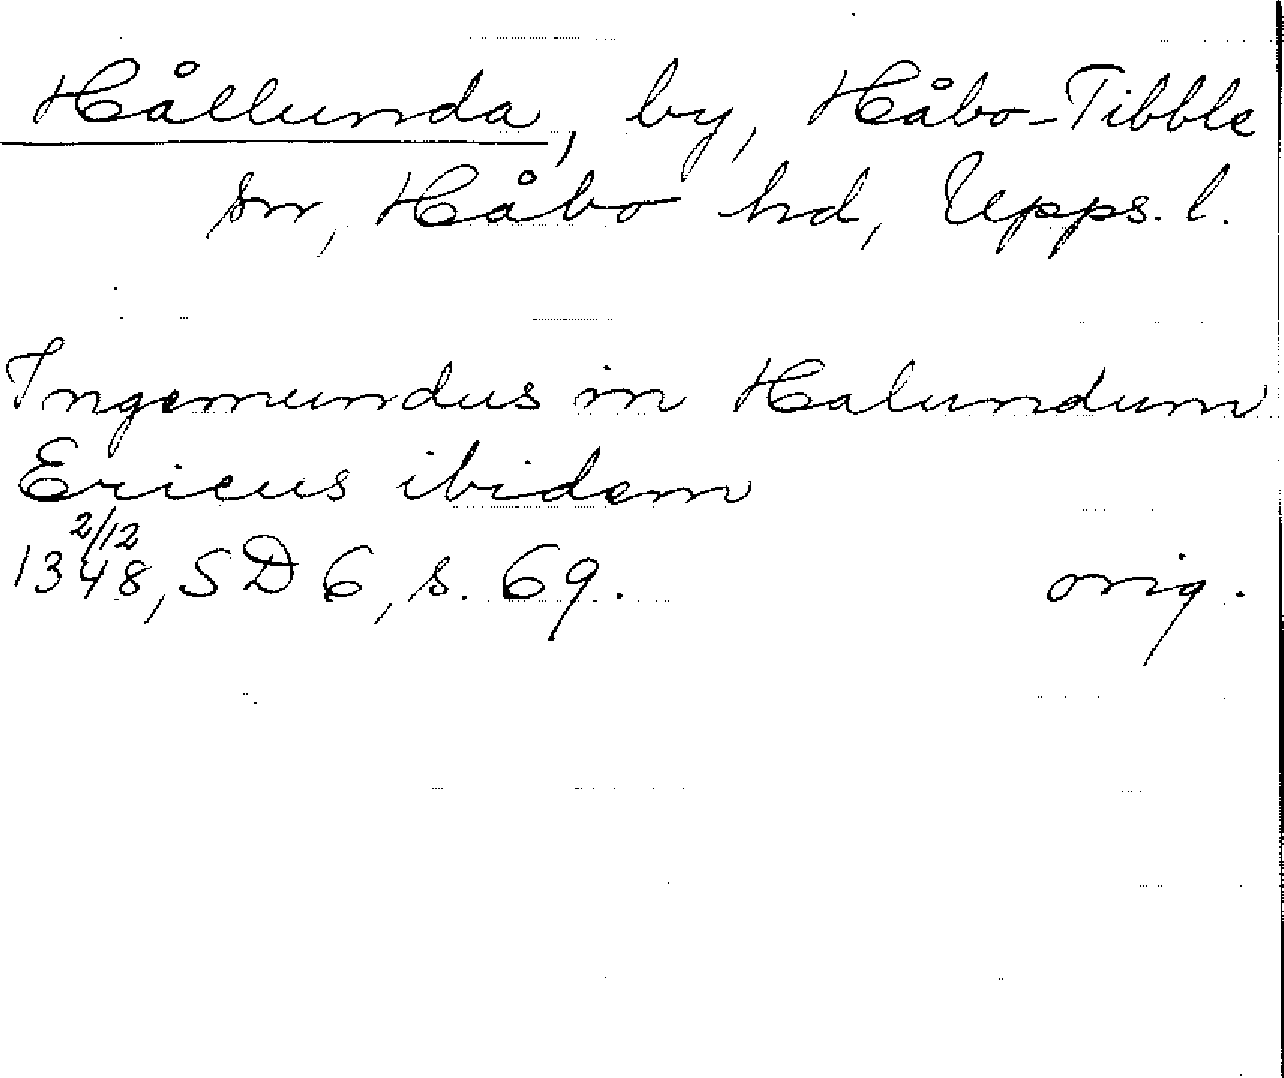 Hållunda, by, Håbo-Tibble
sn, Håbo hd, Upps. l.
Ingemundus in Halundum
Ericus ibidem
2/12
1348, SD 6, s. 69.
orig.